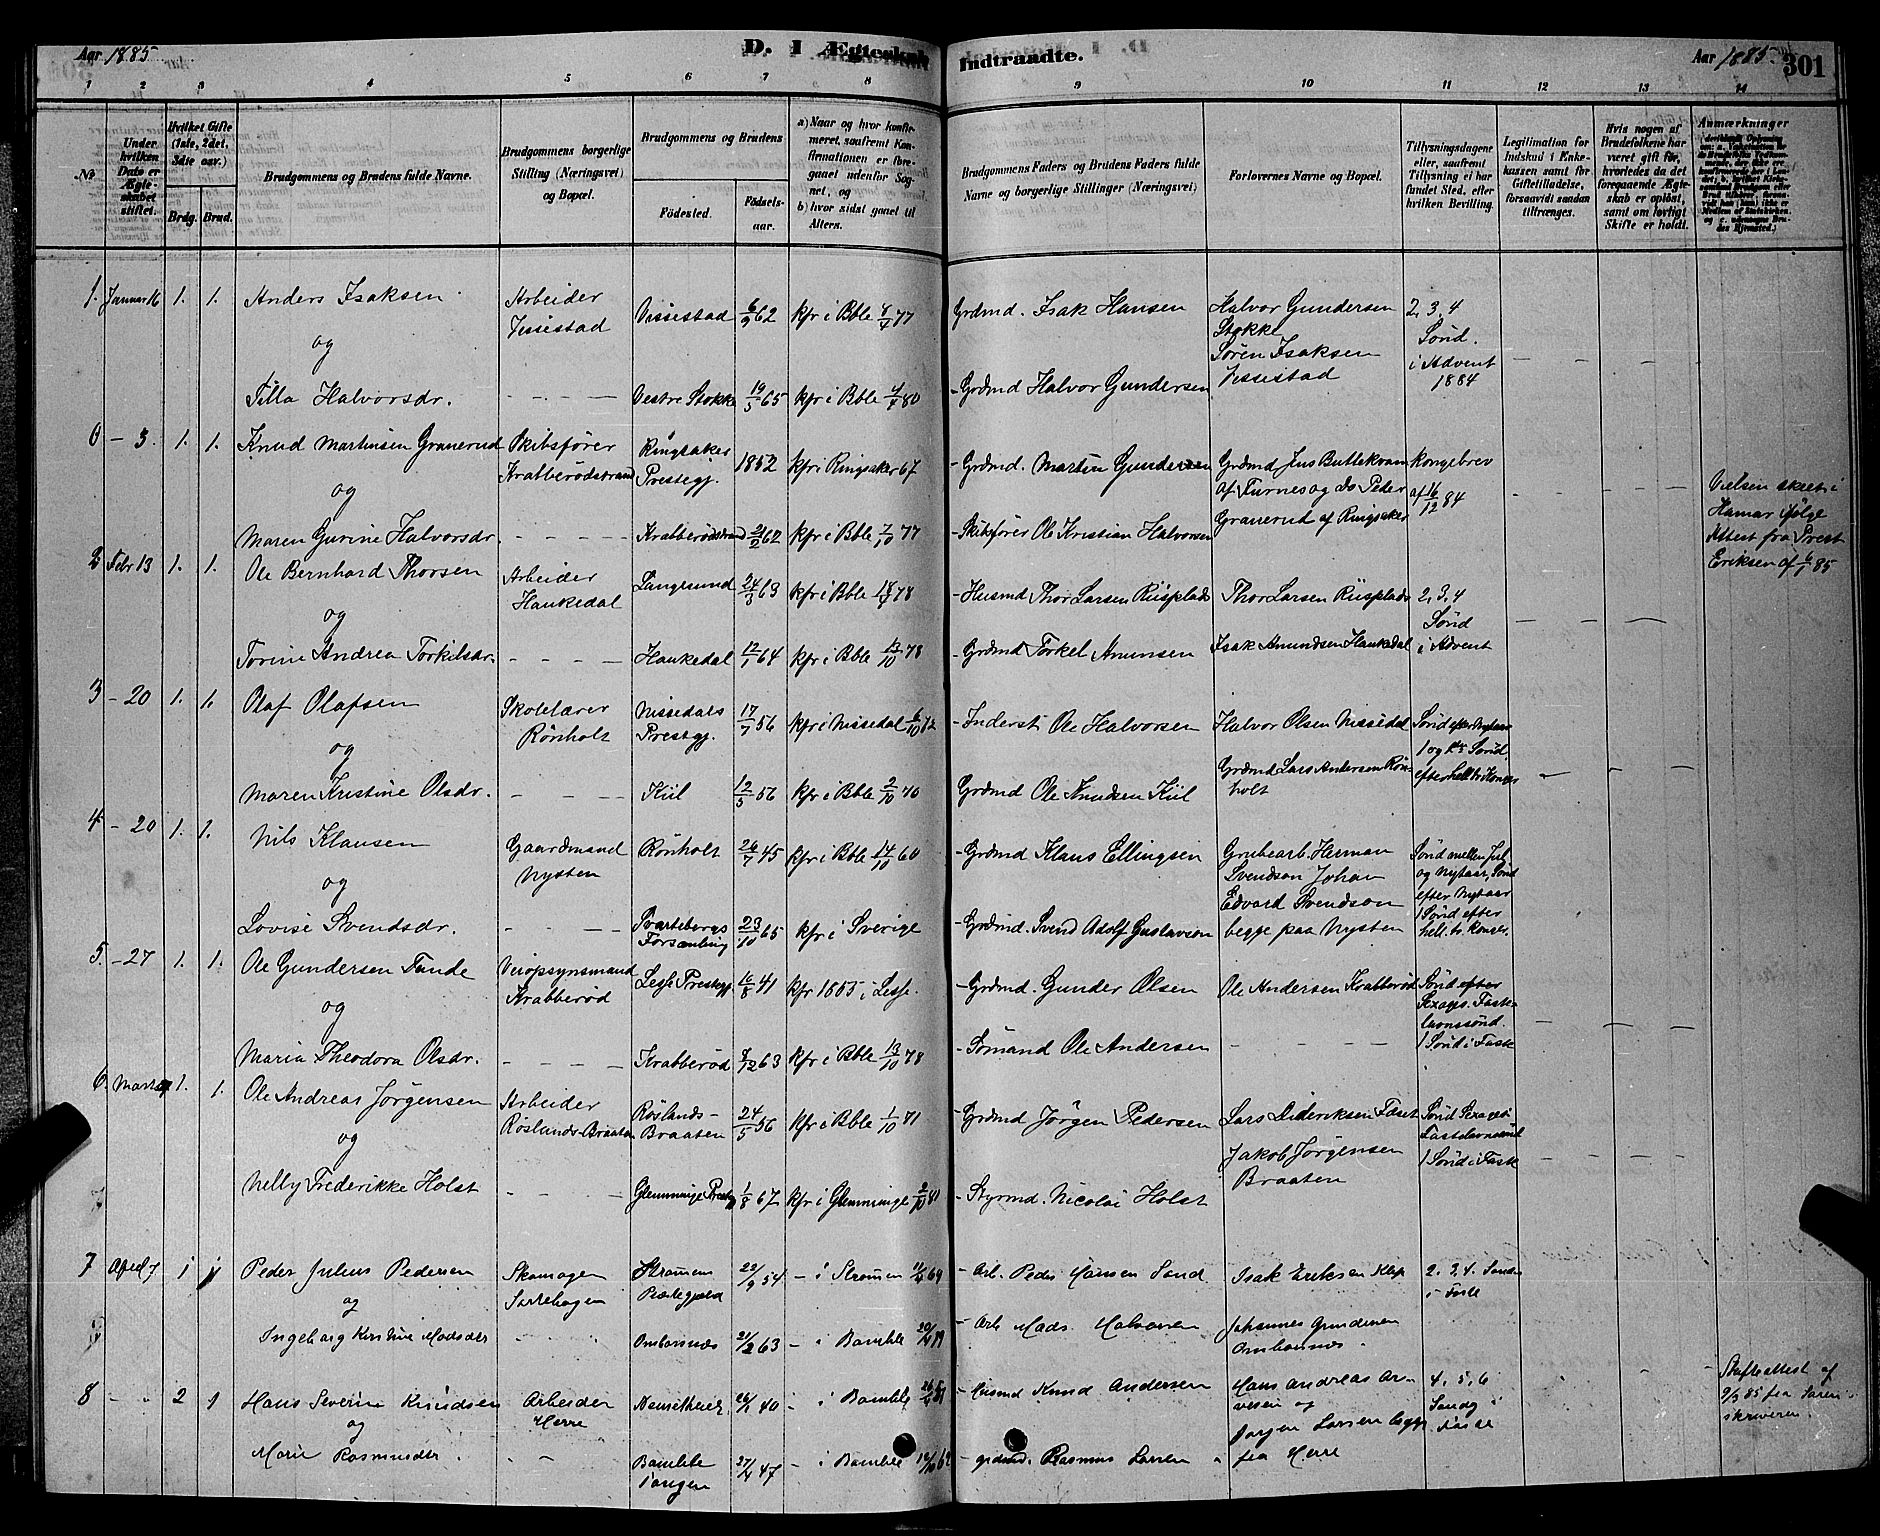 Aar 1885
D. I Ægteskab
Indtraadte.
Aar 1885
301
1 2 3 4 5 6 7 8 9 10 11 12 13 14
No
Under hvilken Dato er Ægteskabet stiftet.
Hvilket Gifte (1ste, 2det, 3die osv.)
Brdg. Brud.
Brudgommens og Brudens fulde Navne.
Brudgommens borgerlige Stilling (Næringsvei) og Bopæl.
Brudgommens og Brudens
Fødested.
Fødselsaar.
a) Naar og hvor konfirmeret, saafremt Konfirmationen er foregaaet udenfor Sognet, og
b) hvor sidst gaaet til Alters.
Brudgommens Faders og Brudens Faders fulde Navne og borgerlige Stillinger (Næringsvei)
Forlovernes Navne og Bopæl.
Tillysningsdagene eller, saafremt Tillysning ei har fundet Sted, efter hvilken Bevilling.
Legitimation for Indskud i Enkekassen samt for Giftetilladelse, forsaavidt saadan tiltrænges.
Hvis nogen af Brudefolkene har været gift før, hvorledes da det foregaaende Ægteskab er opløst, samt om lovligt Skifte er holdt.
Anmærkninger
1. Januar 16 1. 1. Anders Isaksen Arbeider Vissestad Vissestad 6/9 62 kfr i Bble 8/4 77 Grdmd. Isak Hansen Halvor Gundersen Stokke Søren Isaksen Vissestad 2, 3, 4 Sønd. i Advent 1884
og
Tilla Halvorsdr. Vestre Stokke 19/5 65 kfr i Bble 4/7 80 Grdmd Halvor Gundersen
0 – 3. 1. 1. Knud Martinsen Granerud Skibsfører Krabberødstrand Ringsaker Prestegj. 1852 kfr i Ringsaker 67 Grdmd. Martin Gundersen Grdmd Jens Buttekvam af Furnes og do Peder Granerud af Ringsaker Kongebrev af 16/12 84 Vielsen skeet i Hamar ifølge Attest fra Prest Eriksen af 6/1 85
og
Maren Gurine Halvorsdr. Krabberødstrand 21/2 62 kfr i Bble 7/10 77 Skibsfører Ole Kristian Halvorsen
2 Febr 13 1. 1. Ole Bernhard Thorsen Arbeider Haukedal Langesund 24/3 63 kfr i Bble 78 Husmd Thor Larsen Riisplads Thor Larsen Riisplads 2, 3, 4 Sønd i Advent
og
Torine Andrea Torkilsdr. Haukedal 12/1 64 kfr i Bble 13/10 78 Grdmd Torkel Amunsen Isak Amundsen Haukedal
3 – 20 1. 1. Olaf Olafsen Skolelærer Rønholt Nissedals Prestegj. 17/7 56 kfr i Nissedal 6/10 72 Inderst Ole Halvorsen Halvor Olsen Nissedal Sønd efter Nytaar 1 og Sønd efter hell. tr. Konger
og
Maren Kristine Olsdr. Kiil 12/5 56 kfr i Bble 2/10 70 Grdmd Ole Knudsen Kiil Grdmd Lars Andersen Rønholt
4 – 20 1. 1. Nils Klausen Gaardmand Nysten Rønholt 26/7 45 kfr i Bble 14/10 60 Grdmd Klaus Ellingsen Grubearb. Herman Svendson Johan Edvard Svendson begge paa Nysten Sønd mellem Jul og Nytaar, Sønd efter Nytaar 1 Sønd efter hell. tr. Konger
og
Lovise Svendsdr. Svarteborgs Forsamling 23/10 65 kfr i Sverige Grdmd. Svend Adolf Gustavson
5. – 27 1. 1. Ole Gundersen Tande Veiopsynsmand Krabberød Lesje Prestegj. 16/8 41 kfr 1855 i Lesje Grdmd. Gunder Olsen Ole Andersen Krabberød Sønd efter Sexages. Fastelavnssønd. 1 Sønd i Faste
og
Maria Theodora Olsdr. Krabberød 8/12 63 kfr i Bble 13/10 78 Sømand Ole Andersen
6. Marts 1. 1. Ole Andreas Jørgensen Arbeider Røslands Braaten Røslands-Braaten 24/5 56 kfr i Bble 1/10 71 Grdmd Jørgen Pedersen Lars Dideriksen Fosset Jakob Jørgensen Braaten Sønd Sexages. Fastelavnssønd 1 Sønd i Faste
og
Nelly Frederikke Holst Glemminge Prestegj 1/8 67 kfr i Glemminge 2/10 81 Styrmd. Nicolai Holst
7 April 7 1 1 Peder Julius Pedersen Skomager Strømen Præstegjeld 22/9 54 – i Strømen 69 Arb. Peder Hansen Sand Isak Eriksen 2. 3. 4. Søndg i Faste
og
Ingeborg Kirstine Madsdtr Omborsnæs 21/2 63 – i Bamble 20/4 79 Arb. Mads Halvorsen Johannes Gundersen Omborsnæs
8 – " 2 1 Hans Severin Knudsen Arbeider Herre 26/1 40 – i Bamble Husmd Knud Andersen Hans Andreas Arvesen og Jørgen Larsen begge fra Herre 4. 5. 6 Søndg i Faste Skifteattest af 9/3 85 fra Sorenskriveren
og
Marie Rasmusdtr. Bamble Tangen 27/4 47 – i Bamble 62 grdmd. Rasmus Larsen